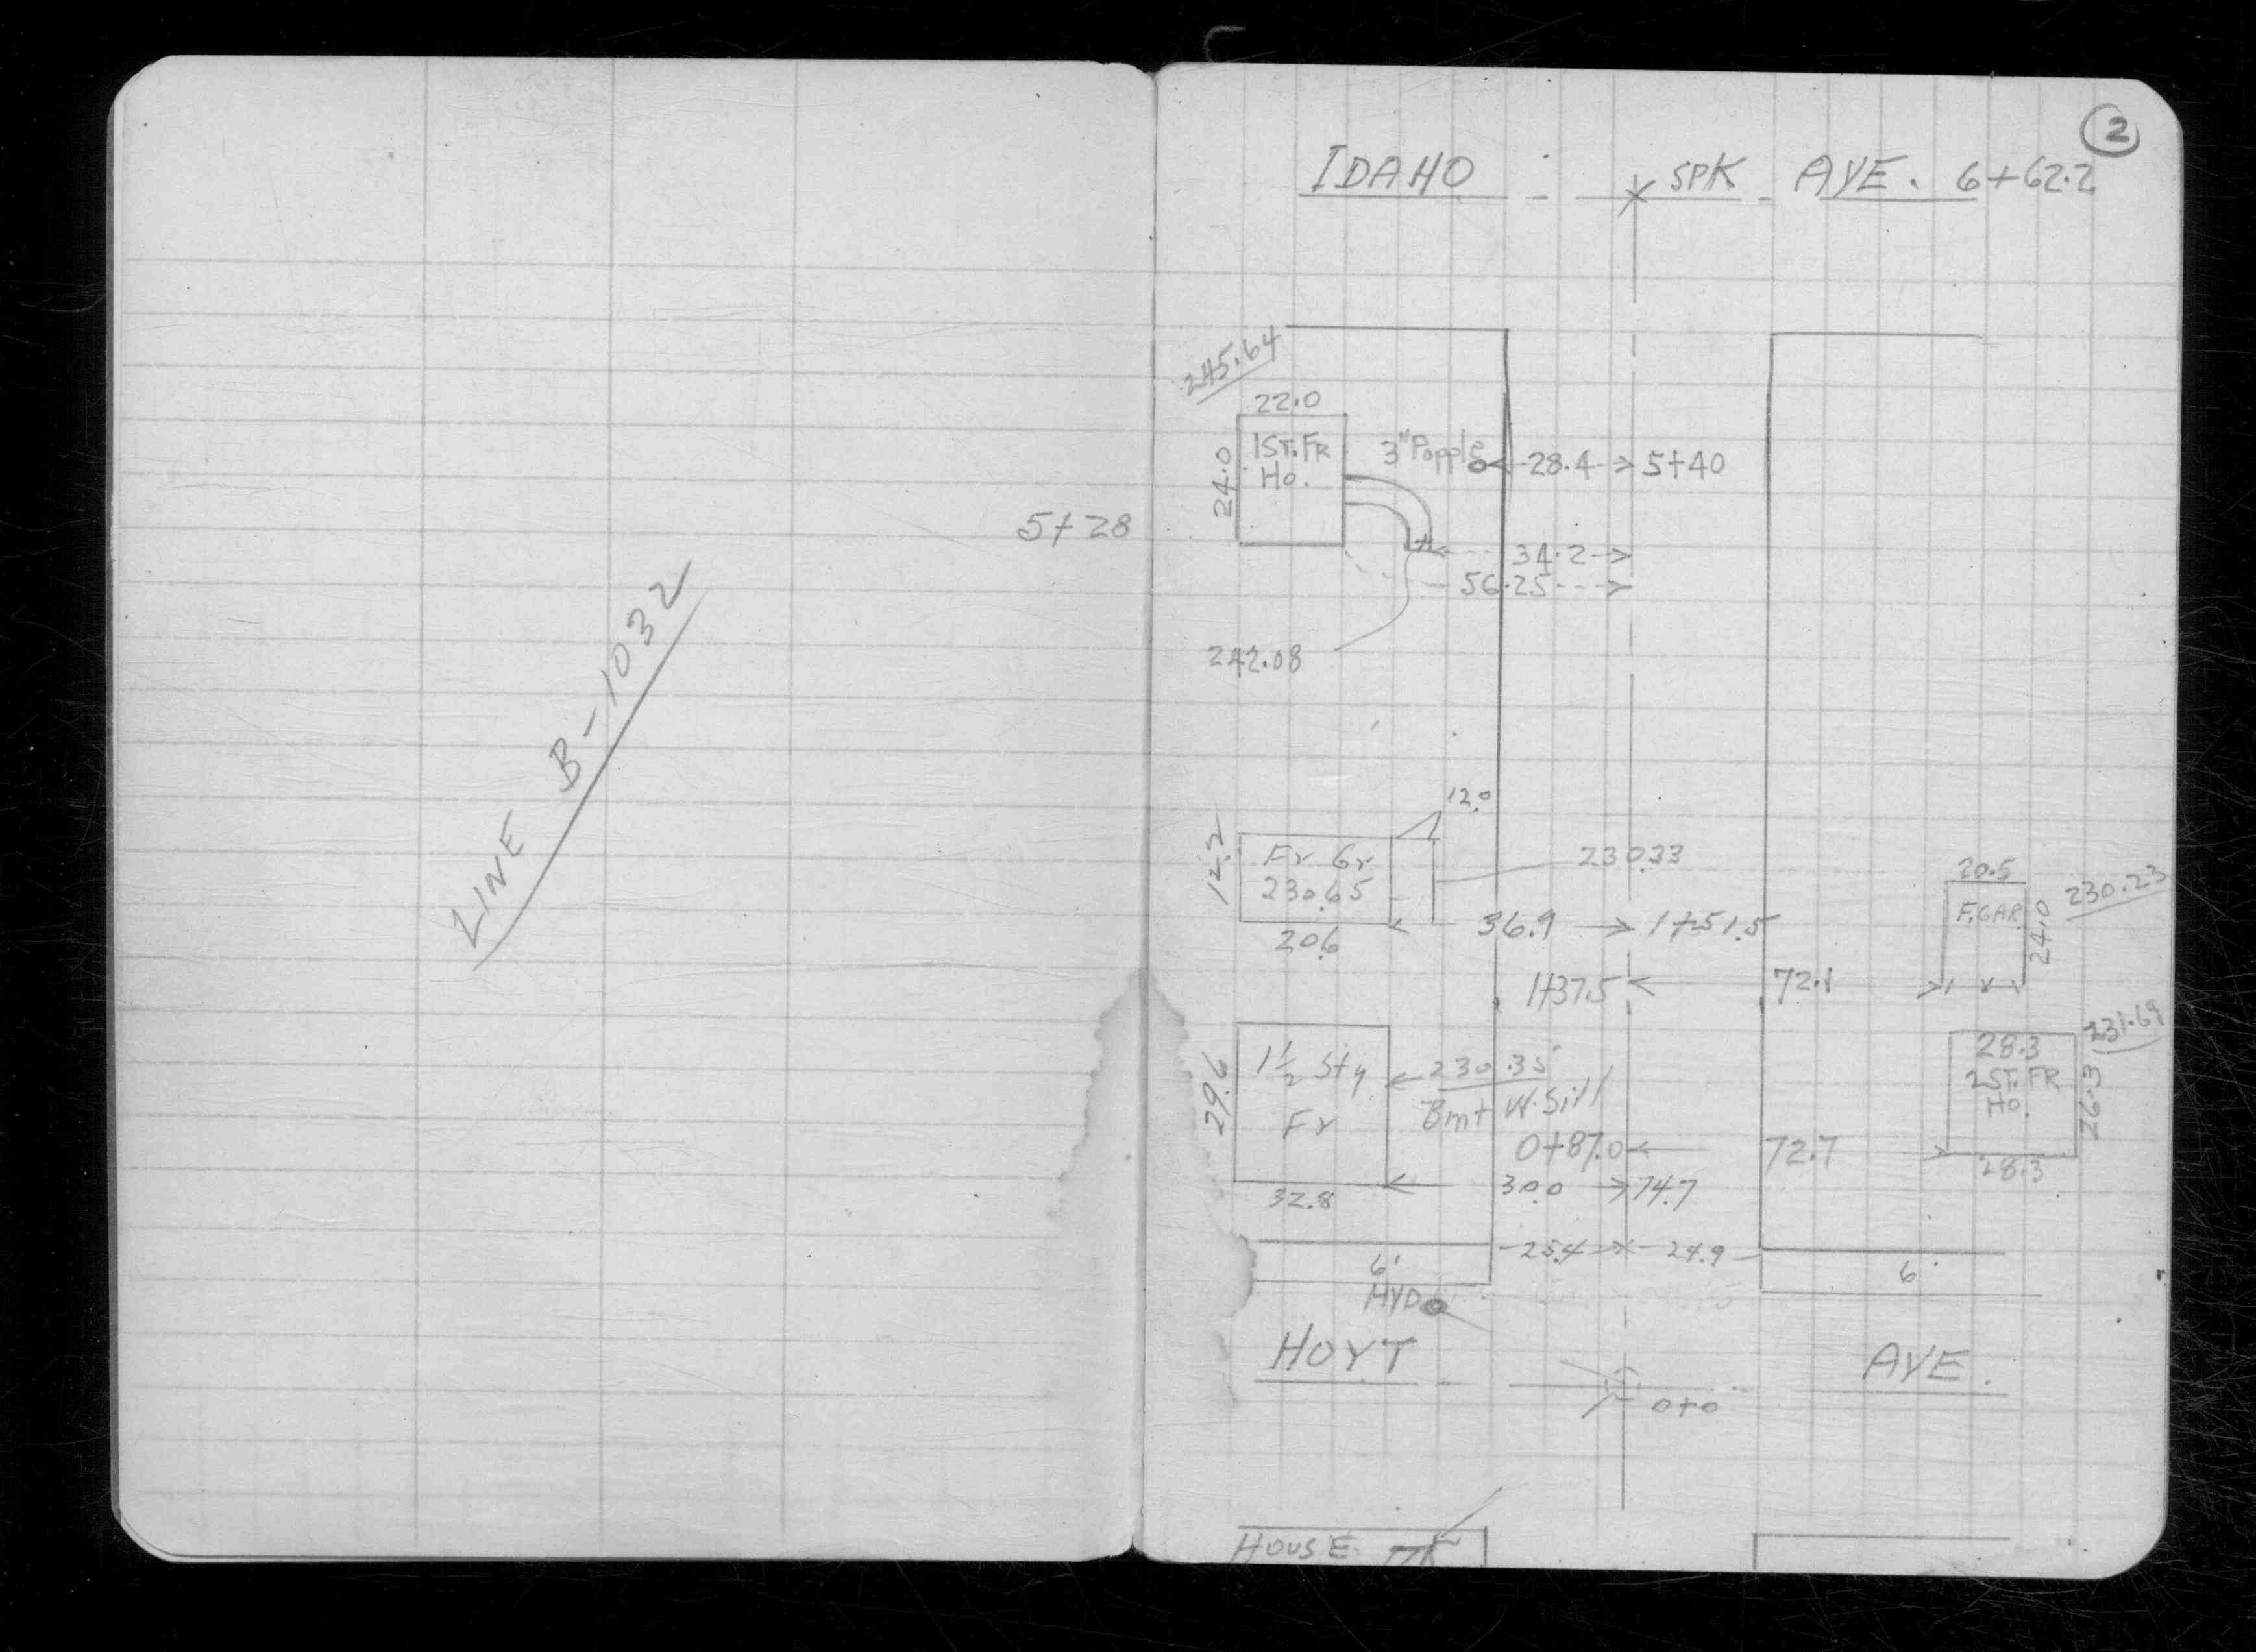 LINE B-1032
5+28
2
IDAHO SPK AVE. 6+62.2
245.64
22.0
24.0
1ST. FR
Ho.
3" Popple 28.4 5+40
34.2
56.25
242.08
12.0
12.2
Fr Gr
230.65
230.33
20.6
36.9 1+51.5
20.5
230.23
F. GAR.
24.0
1+37.5 72.1
231.69
28.3
2ST. FR
Ho.
26.3
29.6
1 1/2 Sty
Fr
230.35
Bmt W. Sill
0+87.0 72.7
28.3
32.8
30.0 74.7
25.4 24.9
6'
6'
HYD
HOYT AVE.
0+0
HOUSE